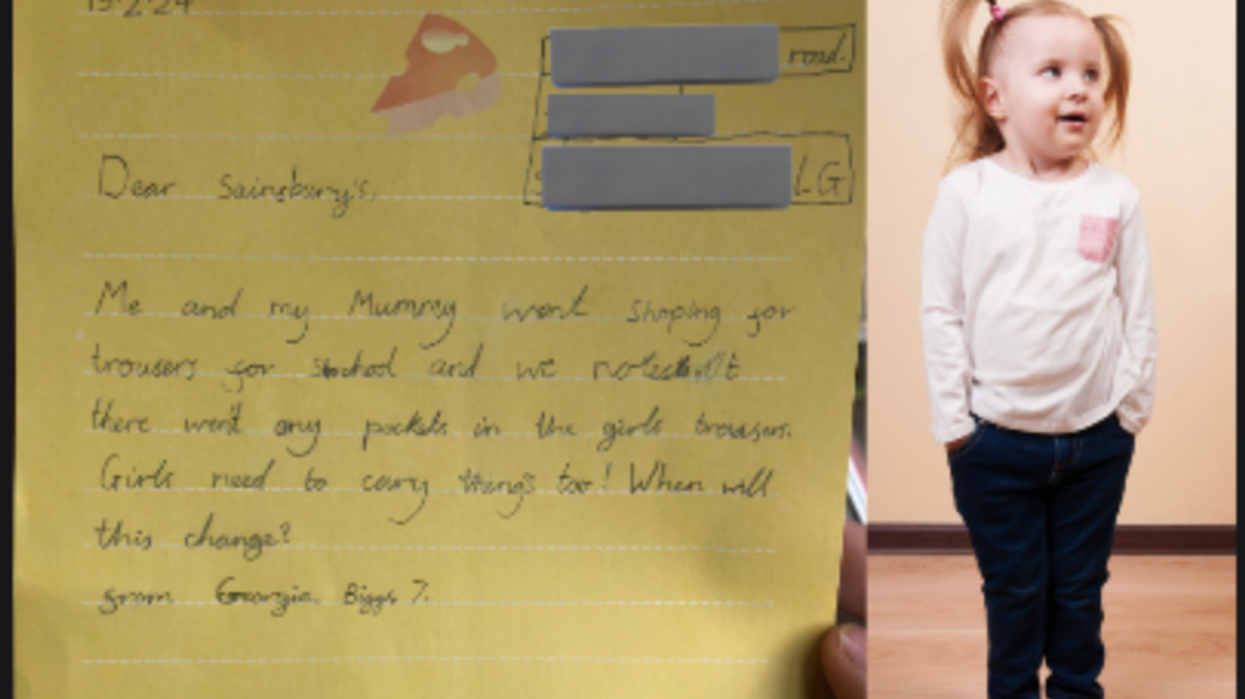 19.2.24
road.
LG
Dear Sainsbury's,
Me and my Mummy went shoping for
trousers for school and we
there wen't any pockets in the girls trousers.
Girls need to cary things too! When will
this change?
from Georgia Biggs 7.